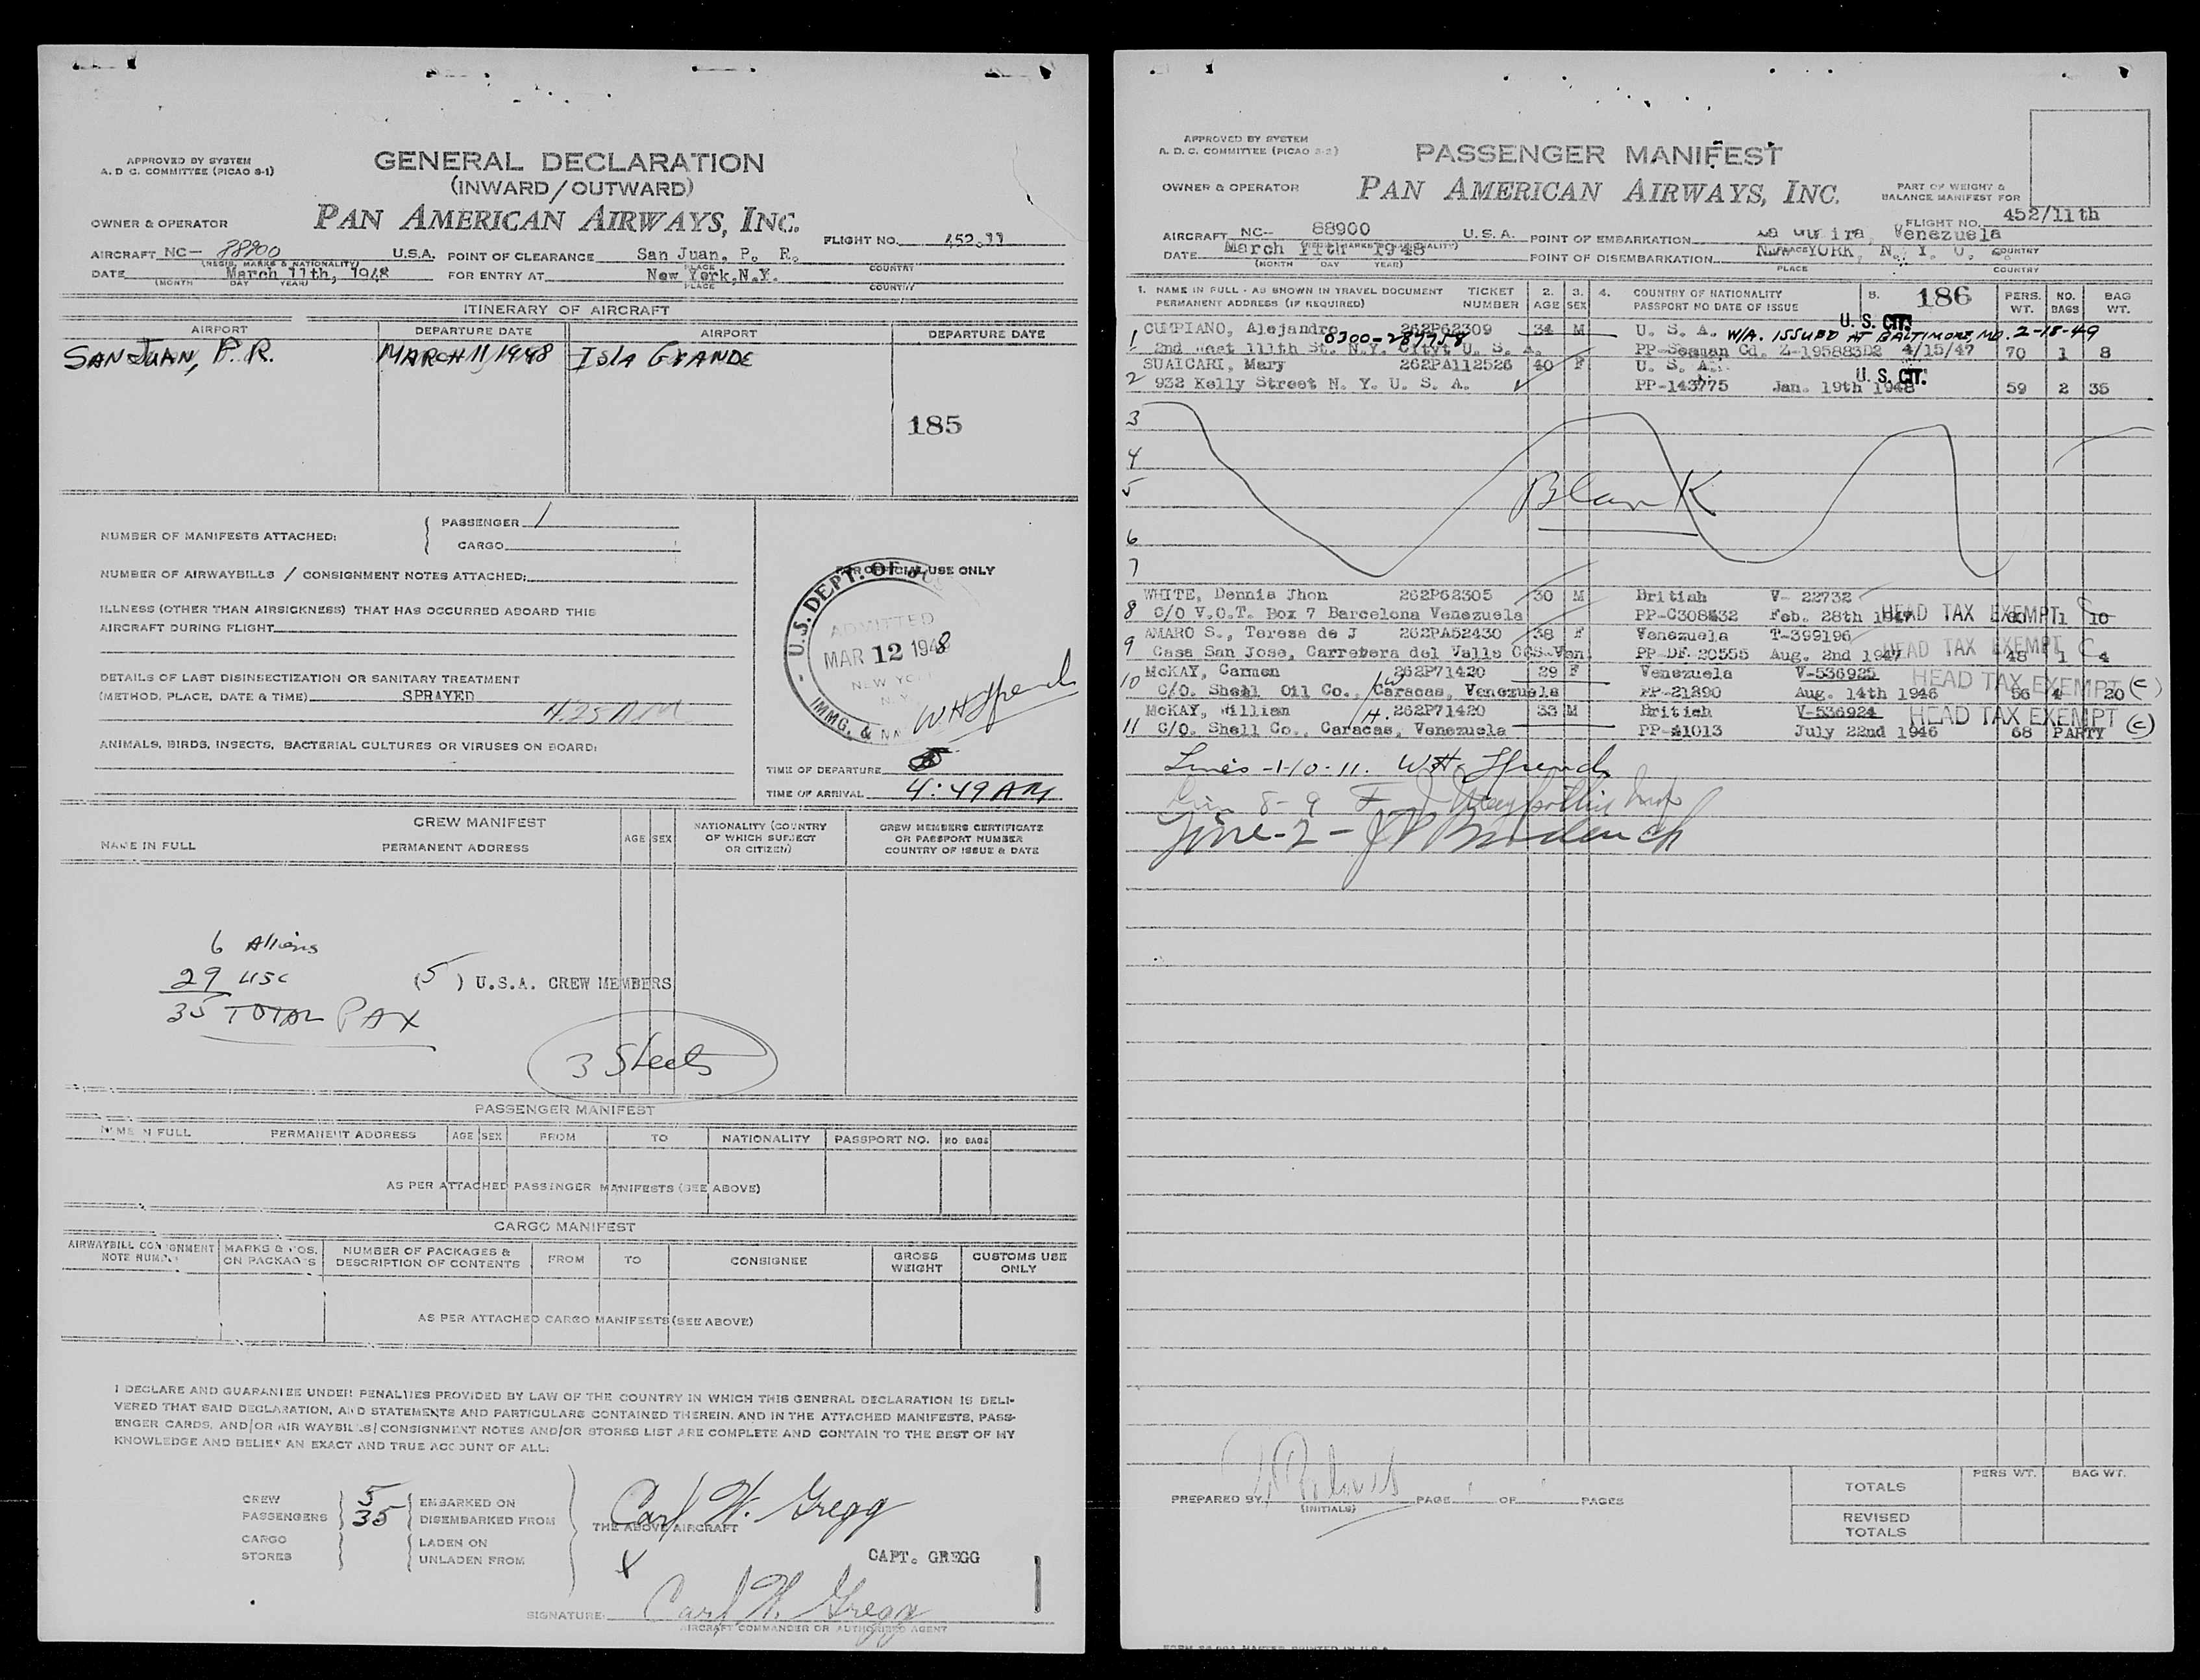 APPROVED BY SYSTEM
A. D. C. COMMITTEE (PICAO 8-1)
GENERAL DECLARATION
(INWARD/OUTWARD)
OWNER & OPERATOR
PAN AMERICAN AIRWAYS, INC.
FLIGHT NO. 452.11
AIRCRAFT NC- 88900 U.S.A. POINT OF CLEARANCE San Juan, P. R.
(REGIS. MARKS & NATIONALITY) PLACE COUNTRY
DATE March 11th, 1948 FOR ENTRY AT New York,N.Y.
(MONTH DAY YEAR) PLACE COUNTRY
ITINERARY OF AIRCRAFT
AIRPORT DEPARTURE DATE AIRPORT DEPARTURE DATE
SAN JUAN, P.R. MARCH 11, 1948 ISLA GRANDE
185
NUMBER OF MANIFESTS ATTACHED: PASSENGER 1
CARGO
NUMBER OF AIRWAYBILLS / CONSIGNMENT NOTES ATTACHED:
ILLNESS (OTHER THAN AIRSICKNESS) THAT HAS OCCURRED ABOARD THIS
AIRCRAFT DURING FLIGHT
DETAILS OF LAST DISINSECTIZATION OR SANITARY TREATMENT
(METHOD, PLACE, DATE & TIME) SPRAYED
ANIMALS, BIRDS, INSECTS, BACTERIAL CULTURES OR VIRUSES ON BOARD:
FOR OFFICIAL USE ONLY
U.S. DEPT. OF
ADMITTED
MAR 12 1948
NEW YORK
N.Y.
IMMG. & NA
TIME OF DEPARTURE
TIME OF ARRIVAL 4:49 AM
CREW MANIFEST
NAME IN FULL PERMANENT ADDRESS AGE SEX NATIONALITY (COUNTRY OF WHICH SUBJECT OR CITIZEN) CREW MEMBERS CERTIFICATE OR PASSPORT NUMBER COUNTRY OF ISSUE & DATE
6 Aliens
29 USC
35 TOTAL PAX
(5) U.S.A. CREW MEMBERS
3 Sheets
PASSENGER MANIFEST
NAME IN FULL PERMANENT ADDRESS AGE SEX FROM TO NATIONALITY PASSPORT NO. NO. BAGS
AS PER ATTACHED PASSENGER MANIFESTS (SEE ABOVE)
CARGO MANIFEST
AIRWAYBILL CONSIGNMENT NOTE NUMBER MARKS & NOS. ON PACKAGES NUMBER OF PACKAGES & DESCRIPTION OF CONTENTS FROM TO CONSIGNEE GROSS WEIGHT CUSTOMS USE ONLY
AS PER ATTACHED CARGO MANIFESTS (SEE ABOVE)
I DECLARE AND GUARANTEE UNDER PENALTIES PROVIDED BY LAW OF THE COUNTRY IN WHICH THIS GENERAL DECLARATION IS DELI-
VERED THAT SAID DECLARATION, AND STATEMENTS AND PARTICULARS CONTAINED THEREIN, AND IN THE ATTACHED MANIFESTS, PASS-
ENGER CARDS, AND/OR AIR WAYBILLS/CONSIGNMENT NOTES AND/OR STORES LIST ARE COMPLETE AND CONTAIN TO THE BEST OF MY
KNOWLEDGE AND BELIEF AN EXACT AND TRUE ACCOUNT OF ALL:
CREW 5 EMBARKED ON
PASSENGERS 35 DISEMBARKED FROM
CARGO LADEN ON
STORES UNLADEN FROM
Carl W. Gregg
THE ABOVE AIRCRAFT
X
CAPT. GREGG
SIGNATURE: Carl W. Gregg
AIRCRAFT COMMANDER OR AUTHORISED AGENT
APPROVED BY SYSTEM
A. D. C. COMMITTEE (PICAO 8-2)
PASSENGER MANIFEST
OWNER & OPERATOR
PAN AMERICAN AIRWAYS, INC.
PART OF WEIGHT &
BALANCE MANIFEST FOR
FLIGHT NO. 452/11th
AIRCRAFT NC- 88900 U.S.A. POINT OF EMBARKATION La Guaira, Venezuela
DATE March 11th 1948 POINT OF DISEMBARKATION NEW YORK, N. Y.
(MONTH DAY YEAR) PLACE COUNTRY
1. NAME IN FULL - AS SHOWN IN TRAVEL DOCUMENT TICKET 2. 3. 4. COUNTRY OF NATIONALITY 5. 186 PERS. NO. BAG
PERMANENT ADDRESS (IF REQUIRED) NUMBER AGE SEX PASSPORT NO DATE OF ISSUE WT. BAGS WT.
1 CUMPIANO, Alejandro 262P62309 34 M U. S. A. U. S. CIT. W/A. ISSUED AT BALTIMORE, MD. 2-18-49
0300-287958
2nd East 111th St. N.Y. City U. S. A. PP-Seaman Cd. Z-195883D2 4/15/47 70 1 8
2 SUAICARI, Mary 262PA112526 40 F U. S. A. U. S. CIT.
932 Kelly Street N. Y. U. S. A. PP-143775 Jan. 19th 1948 59 2 35
3
4
5
Blank
6
7
8 WHITE, Dennis Jhon 262P62305 30 M British V- 22732
C/O V.O.T. Box 7 Barcelona Venezuela PP-C308432 Feb. 28th 1947 HEAD TAX EXEMPT 1 10
9 AMARO S., Teresa de J 262PA52430 38 F Venezuela T-399196
Casa San Jose, Carretera del Valle CCS-Ven. PP-DF. 20555 Aug. 2nd 1947 HEAD TAX EXEMPT C 48 1 4
10 McKAY, Carmen 262P71420 29 F Venezuela V-536925
C/O. Shell Oil Co., Caracas, Venezuela PP-21890 Aug. 14th 1946 HEAD TAX EXEMPT (C) 56 4 20
11 McKAY, William H. 262P71420 33 M British V-536924 HEAD TAX EXEMPT (C)
C/O. Shell Co., Caracas, Venezuela PP-41013 July 22nd 1946 68 PARTY
Lines -1-10-11.
Line 8-9
Line-2-
PREPARED BY (INITIALS) PAGE OF PAGES
PERS WT. BAG WT.
TOTALS
REVISED
TOTALS